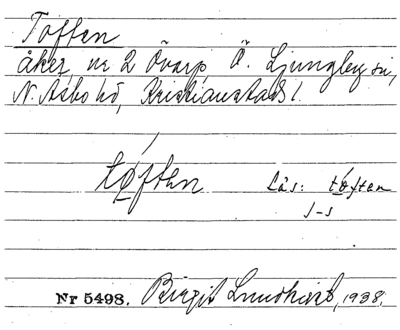 Toften
åker, nr 2 Övarp, Ö. Ljungby sn,
N. Åsbo hd, Kristianstads l.
tǿften Läs: tǿften
1-s
Nr 5498. Birgit Lundkvist, 1938.